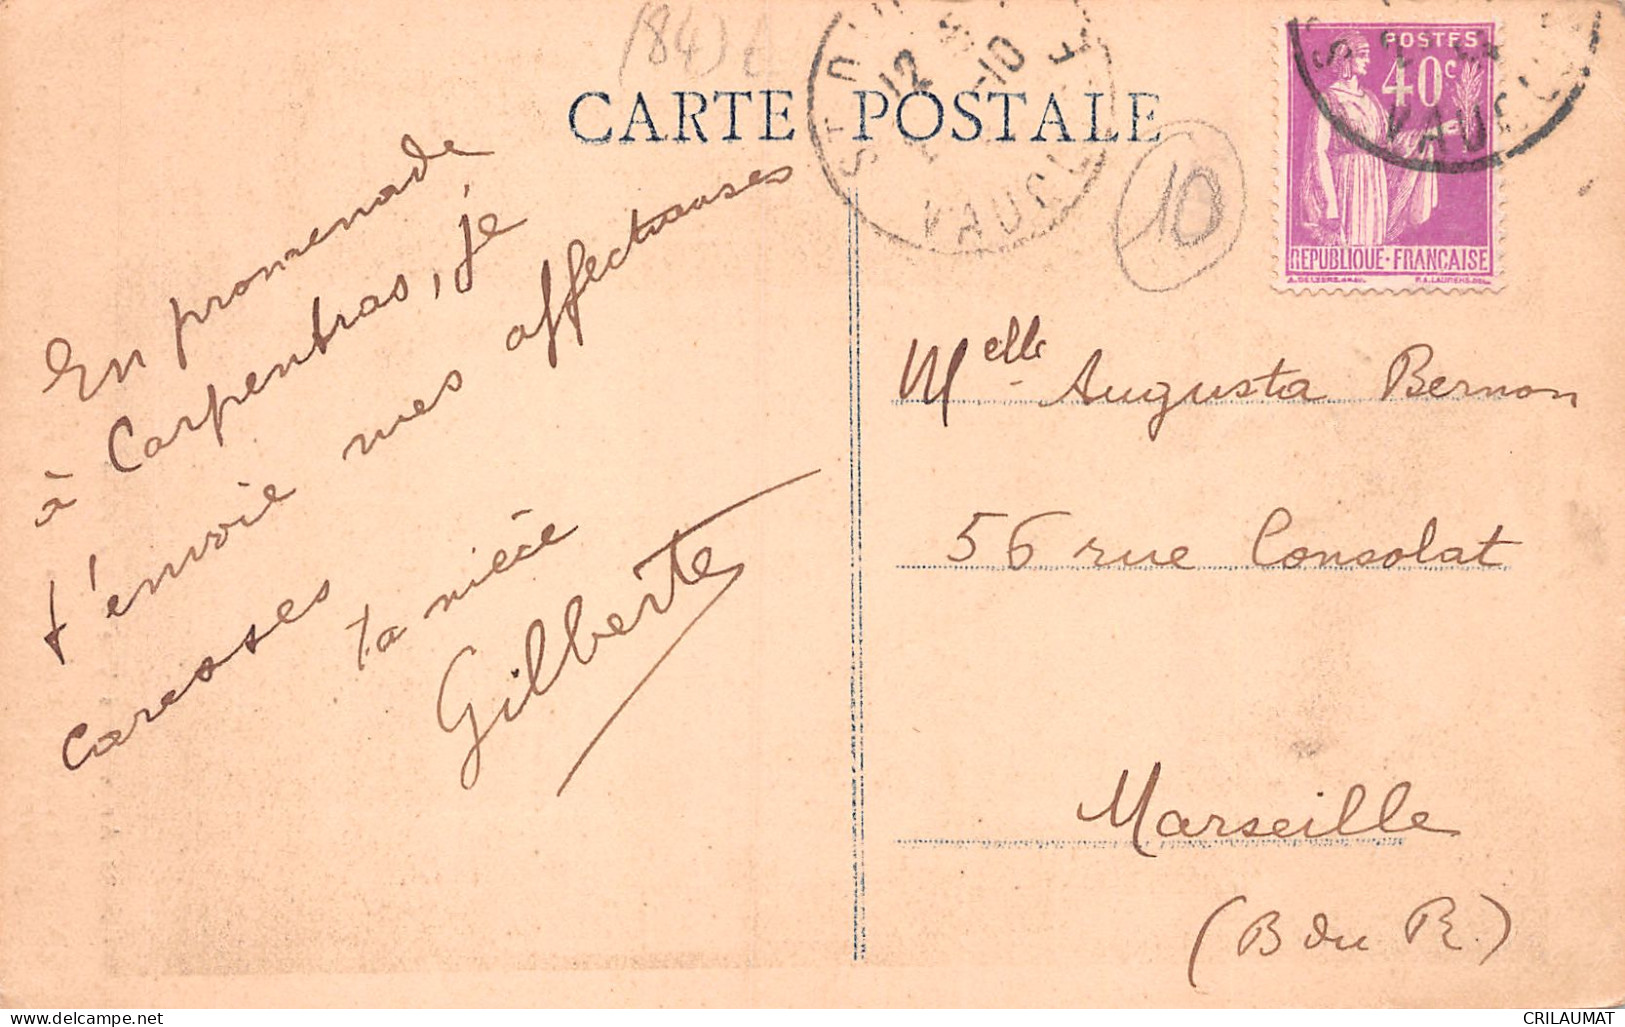 (84)
CARTE POSTALE
12
-10
VAUCL
10
POSTES
40c
VAUCL
REPUBLIQUE·FRANÇAISE
En promenade
à Carpentras, je
t'envoie mes affectueuses
caresses
ta nièce
Gilberte
Melle Augusta Bernon
56 rue Consolat
Marseille
(B du R.)
CRILAUMAT